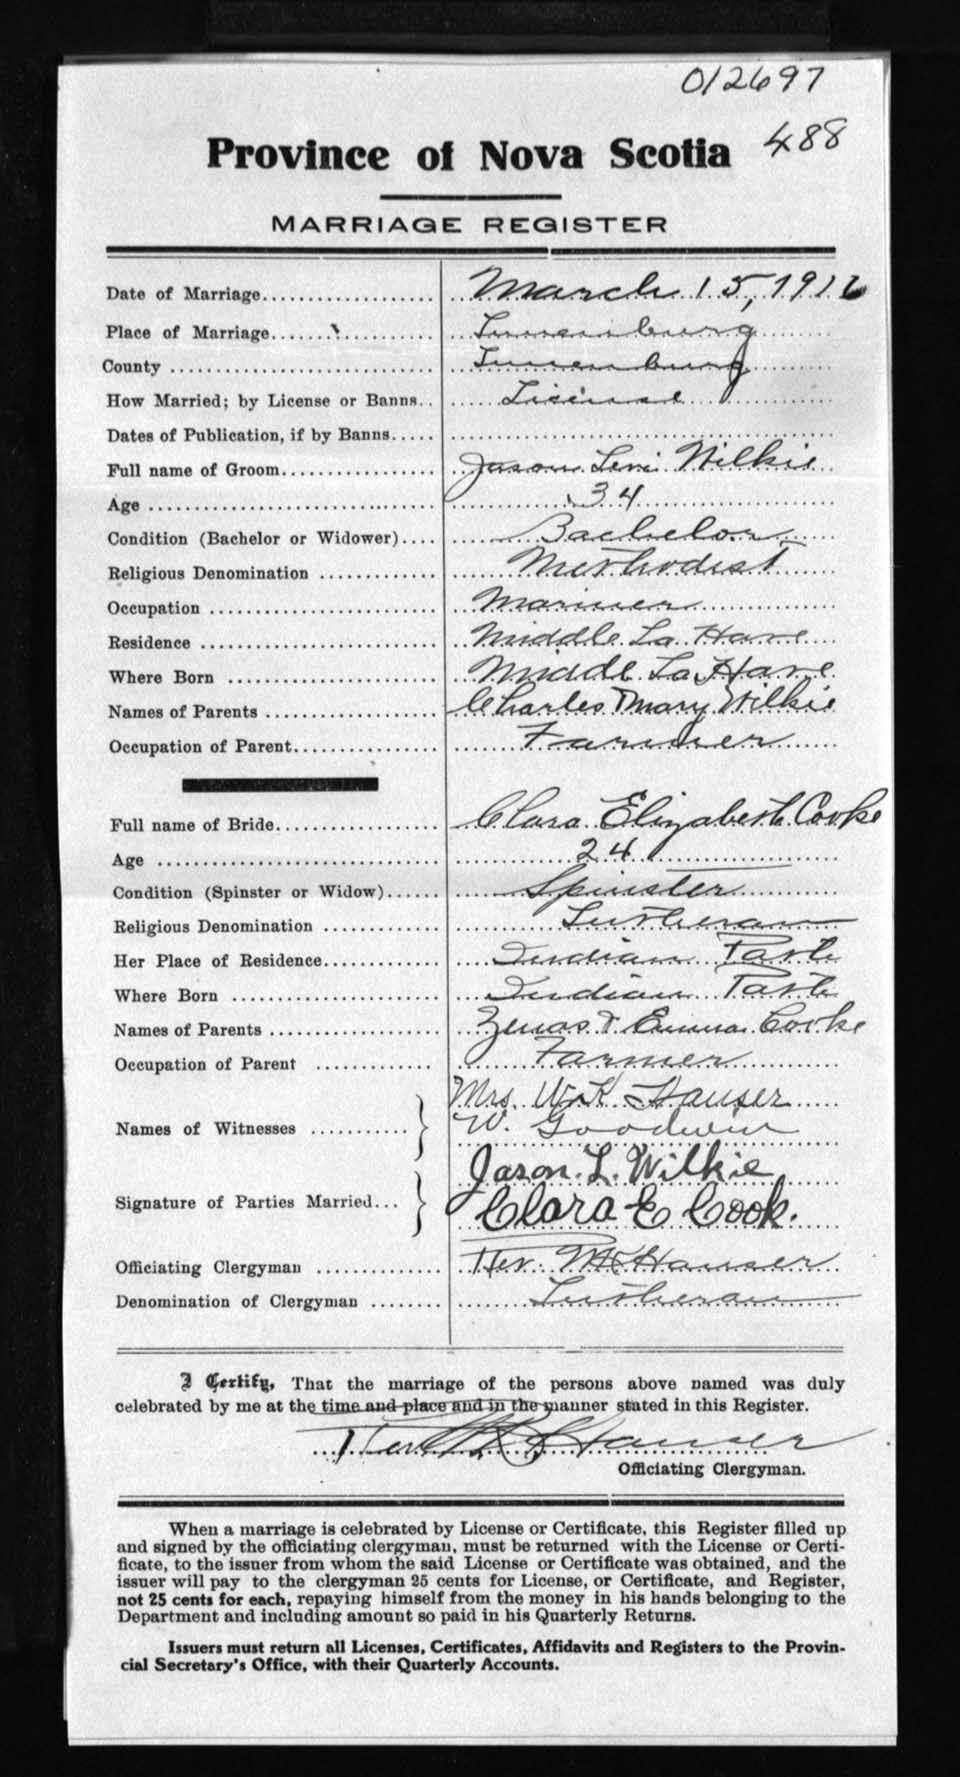 012697
488
Province of Nova Scotia
MARRIAGE REGISTER
Date of Marriage.................... March 15, 1916
Place of Marriage.................... Lunenburg
County .............................. Lunenburg
How Married; by License or Banns.. License
Dates of Publication, if by Banns.....
Full name of Groom................. Jason Levi Wilkie
Age ................................. 34
Condition (Bachelor or Widower).... Bachelor
Religious Denomination ............. Methodist
Occupation ......................... Mariner
Residence .......................... Middle La Have
Where Born ....................... Middle La Have
Names of Parents .................. Charles & Mary Wilkie
Occupation of Parent............... Farmer
Full name of Bride.................. Clara Elizabeth Cooke
Age ............................... 24
Condition (Spinster or Widow)...... Spinster
Religious Denomination ............. Lutheran
Her Place of Residence............. Indian Path
Where Born ....................... Indian Path
Names of Parents ................... Zenas & Emma Cooke
Occupation of Parent .............. Farmer
Mrs. W. K. Hauser
Names of Witnesses ........... W. Goodwin
Jason. L. Wilkie
Signature of Parties Married...
Clara E Cook.
Officiating Clergyman .............. Rev. Hauser
Denomination of Clergyman ........ Lutheran
I Certify, That the marriage of the persons above named was duly
celebrated by me at the time and place and in the manner stated in this Register.
Rev Hauser
Officiating Clergyman.
When a marriage is celebrated by License or Certificate, this Register filled up
and signed by the officiating clergyman, must be returned with the License or Certi-
ficate, to the issuer from whom the said License or Certificate was obtained, and the
issuer will pay to the clergyman 25 cents for License, or Certificate, and Register,
not 25 cents for each, repaying himself from the money in his hands belonging to the
Department and including amount so paid in his Quarterly Returns.
Issuers must return all Licenses, Certificates, Affidavits and Registers to the Provin-
cial Secretary's Office, with their Quarterly Accounts.